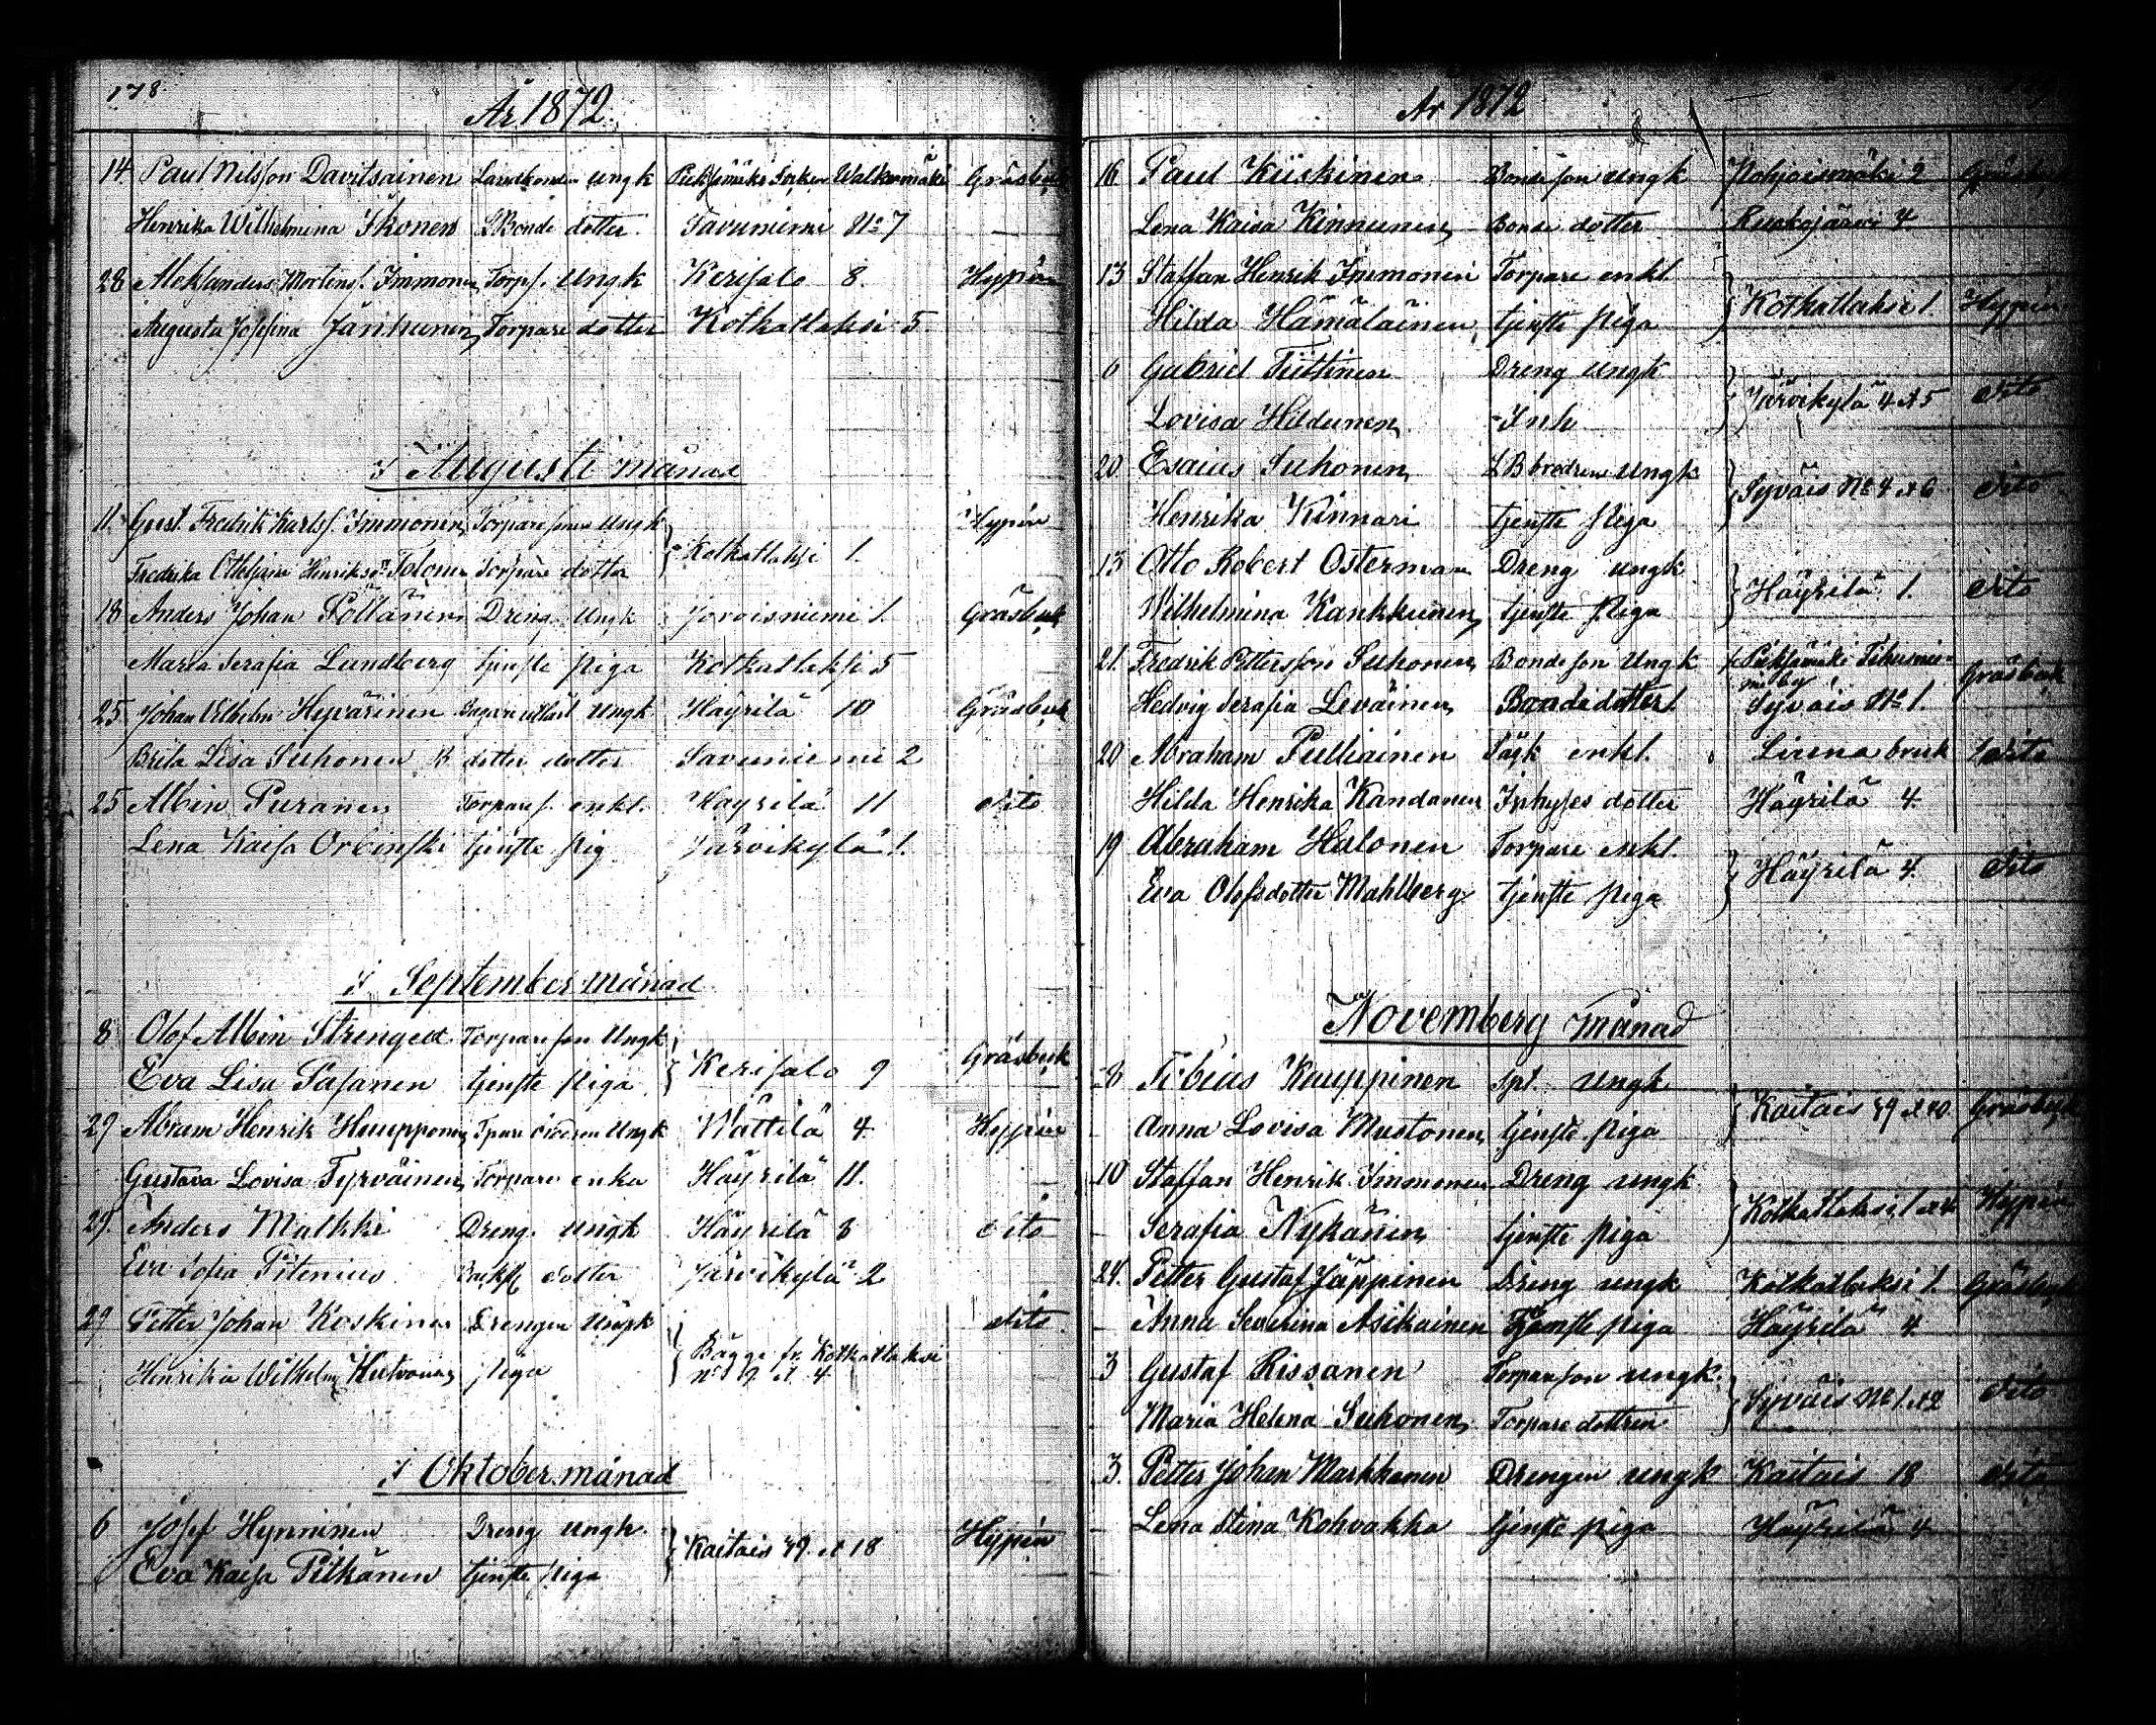 178
År 1872.
14. Paul Nilsson Davitsainen Landbonden ungk Pieksämäki Socken Walkamäki Gräsbeck
Henrika Wilhelmina Ikonen LBonde dotter. Savuniemi No 7
28 Aleksanders Mortens. Immonen Torps. Ungk Kerisalo 8. Hyppén
Augusta Josefina Jänhunen Torpare dotter Kotkatlaksi 5.
I Augusti månad
11. Gust. Fredrik Karlss. Immonen Torpare sonen Ungk Hyppén
Kotkatlaksi 1.
Fredrika Henriksdr Tolonen Torpare dotter
18 Anders Johan Pöllänen Dreng. Ungk Joroisniemi 1. Gräsbeck
Maria Serafia Lundberg tjenste piga Kotkatlaksi 5
25. Johan Vilhelm Hyvärinen ungk Häyrilä 10 Gräsbeck
Brita Lisa Suhonen B dotter dotter Savuniemi 2
25 Albin Puranen Torpare s. enkl. Häyrilä 11 dito
Lena Kaisa Orbinski tjenste pig Järvikylä 1.
I September månad
8 Olof Albin Strengell Torpare son Ungk
Kerisalo 9 Gräsbeck
Eva Lisa Pasanen tjenste piga
29 Abram Henrik Haupponen Tpare brodren Ungk Wättilä 4. Hyppén
Gustava Lovisa Tyrväinen, Torpare enka Häyrilä 11.
29. Anders Malkki Dreng. ungk Häyrilä 8 dito
Eva Sofia Pitenius dotter Järvikylä 2
29 Petter Johan Koskinen Drengen Ungk dito
Bägge fr. Kotkatlaksi
Henrika Wilhelm. Hulvonen piga No 9 et 4.
I Oktober månad
6 Josef Hynninen Dreng ungk.
Kaitais 49. et 18 Hyppén
Eva Kaisa Pitkänen tjenste piga
År 1872
16 Paul Kiiskinen Bonde son ungk Pohjoismäki 2 Gräsbeck
Lena Kaisa Kinnunen, Bonde dotter Ruokojärvi 4.
13 Staffan Henrik Immonen Torpare enkl.
Kotkatlaksi 1. Hyppén
Hilda Hämäläinen, tjenste piga
6 Gabriel Tiittinen Dreng ungk
Järvikylä 4 et 5 dito
Lovisa Hildunen Inh
20 Esaias Suhonen, LB brodren ungk
Syväis No 4 et 6 dito
Henrika Kinnari tjenste piga
13 Otto Robert Osterman Dreng ungk
Häyrilä 1. dito
Wilhelmina Kankkunen, tjenste piga
21. Fredrik Pettersson Suhonen, Bonde son Ungk Pieksämäki Gräsbeck
Hedvig Serafia Leväinen, Bonde dotter Syväis No 1.
20 Abraham Pulliainen enkl. Liuna bruk dito
Hilda Henrika Kandanen Inhyses dotter Häyrilä 4.
19 Abraham Halonen Torpare enkl.
Häyrilä 4. dito
Eva Olofsdotter Mahlberg tjenste piga
Novemberg månad
8 Tobias Kauppinen spt ungk
Kaitais 49 et 40. Gräsbeck
Anna Lovisa Mustonen, tjenste piga
10 Staffan Henrik Immonen Dreng ungk
Kotkatlaksi 1 et 4 Hyppén
Serafia Nykänen, tjenste piga
24. Petter Gustaf Jäppinen Dreng ungk Kotkatlaksi 1. Gräsbeck
Anna Severina Asikainen Tjänste piga Häyrilä 4.
3 Gustaf Rissanen Torpare son ungk.
Syväis No 1 et 2 dito
Maria Helena Suhonen, Torpare dottren
3. Petter Johan Markkanen Drengen ungk Kaitais 18 dito
Lena Stina Kohvakka tjenste piga Häyrilä 4